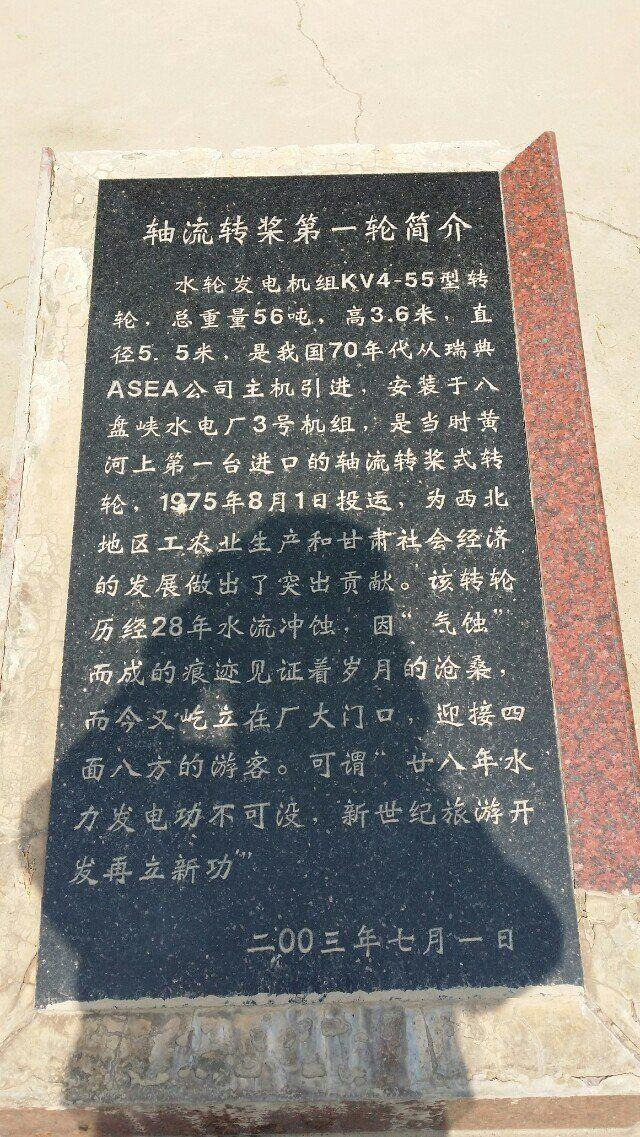 轴流转桨第一轮简介
水轮发电机组KV4-55型转
轮，总重量56吨，高3.6米，直
径5.5米，是我国70年代从瑞典
ASEA公司主机引进，安装于八
盘峡水电厂3号机组，是当时黄
河上第一台进口的轴流转桨式转
轮，1975年8月1日投运，为西北
地区工农业生产和甘肃社会经济
的发展做出了突出贡献。该转轮
历经28年水流冲蚀，因“气蚀”
而成的痕迹见证着岁月的沧桑，
而今又屹立在厂大门口，迎接四
面八方的游客。可谓“廿八年水
力发电功不可没，新世纪旅游开
发再立新功”
二00三年七月一日